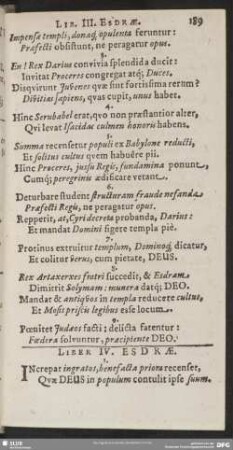 LIB. III. ESDRÆ. 189
Impensæ templi, donaq́, opulenta feruntur:
Præfecti obsistunt, ne peragatur opus.
3.
En! Rex Darius convivia splendida ducit:
Invitat Proceres congregat atq́; Duces.
Disqvirunt Juvenes qvæ sint fortissima rerum?
Divitias sapiens, qvas cupit, unus habet.
4.
Hinc Serubabel erat, qvo non præstantior alter,
Qvi levat Isacidas culmen honoris habens.
5.
Summa recensetur populi ex Babylone reducti,
Et solitus cultus qvem habuêre pii.
Hinc Proceres, jussu Regis, fundamina ponunt,
Cumq́; peregrinis ædificare vetant.
6.
Deturbare student structuram fraude nefanda
Præfecti Regis, ne peragatur opus.
Repperit, at, Cyri decreta probanda, Darius:
Et mandat Domini figere templa piè.
7.
Protinus extruitur templum, Dominoq́; dicatur,
Et colitur verus, cum pietate, DEUS.
8.
Rex Artaxerxes fratri succedit, & Esdram
Dimittit Solymam: munera datq́; DEO.
Mandat & antiqvos in templa reducere cultus,
Et Mosis priscis legibus esse locum.
9.
Pœnitet Judæos facti: delicta fatentur:
Fœdera solvuntur, præcipiente DEO.
LIBER IV. ESDRÆ.
1.
INcrepat ingratos, benefacta priora recenset,
Qvæ DEUS in populum contulit ipse suum.